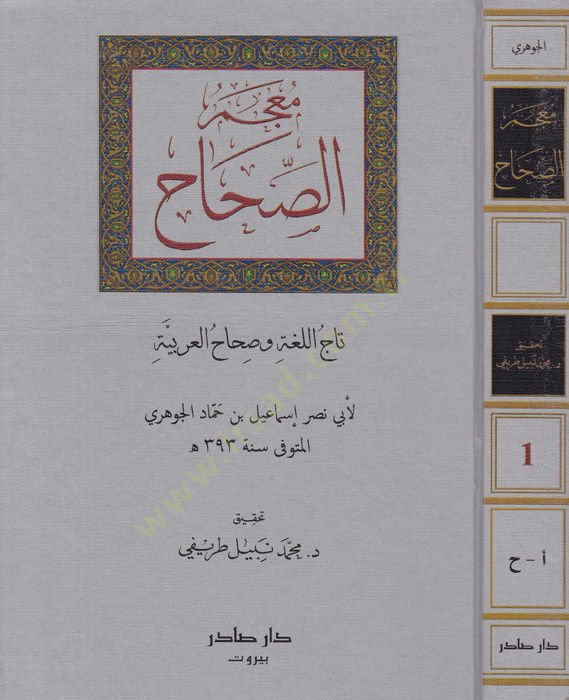 مُعْجَمُ
الصِّحَاحِ
تاجُ اللغةِ وصِحاحُ العربيَّةِ
لأبي نصر إسماعيل بن حَمّاد الجوهري
المتوفى سنة ٣٩٣ ه
تحقيق
د. محمّد نَبيل طريفي
دار صادر
بيروت
الجوهري
مُعْجَمُ
الصِّحَاحِ
تحقيق
د. محمّد نَبيل طريفي
1
أ - ح
دار صادر